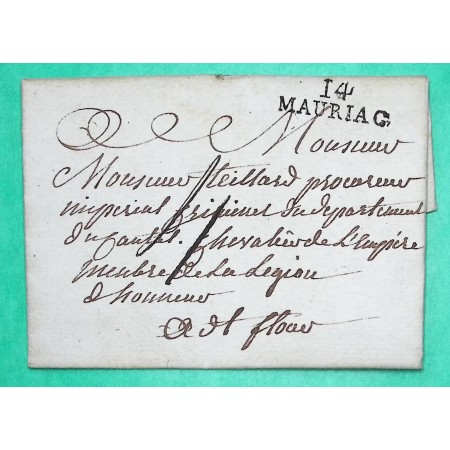 14
MAURIAC
Monsieur
Monsieur teillard procureur
imperial criminel du departement
du Cantal. Chevalier de L'Empire
membre de La Legion
d honneur
A St flour